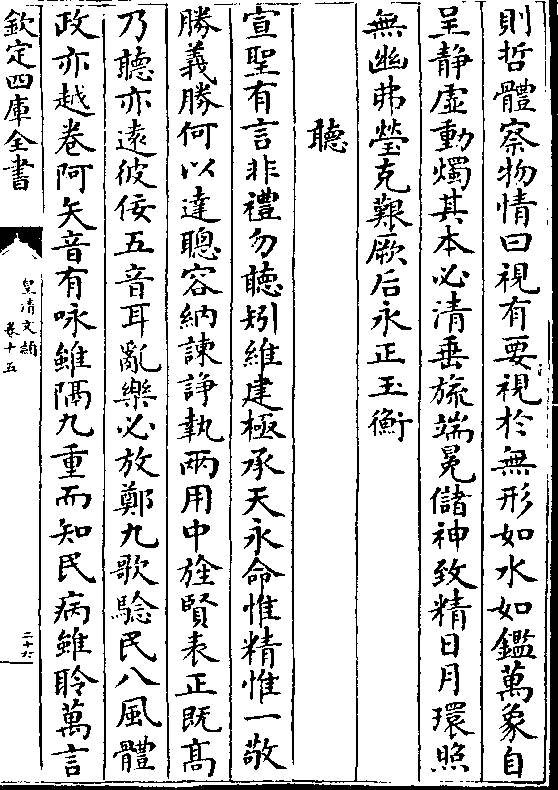 則哲體察物情曰視有要視於無形如水如鑑萬象自
呈静虚動燭其本必清垂旒端冕儲神致精日月環照
無幽弗瑩克艱厥后永正玉衡
聽
宣聖有言非禮勿聽矧維建極承天永命惟精惟一敬
勝義勝何以達聰容納諫諍執兩用中旌賢表正既髙
乃聽亦遠彼佞五音耳亂樂必放鄭九歌騐民八風體
政亦越卷阿矢音有咏雖隔九重而知民病雖聆萬言
欽定四庫全書
皇清文頴
卷十五
二十六